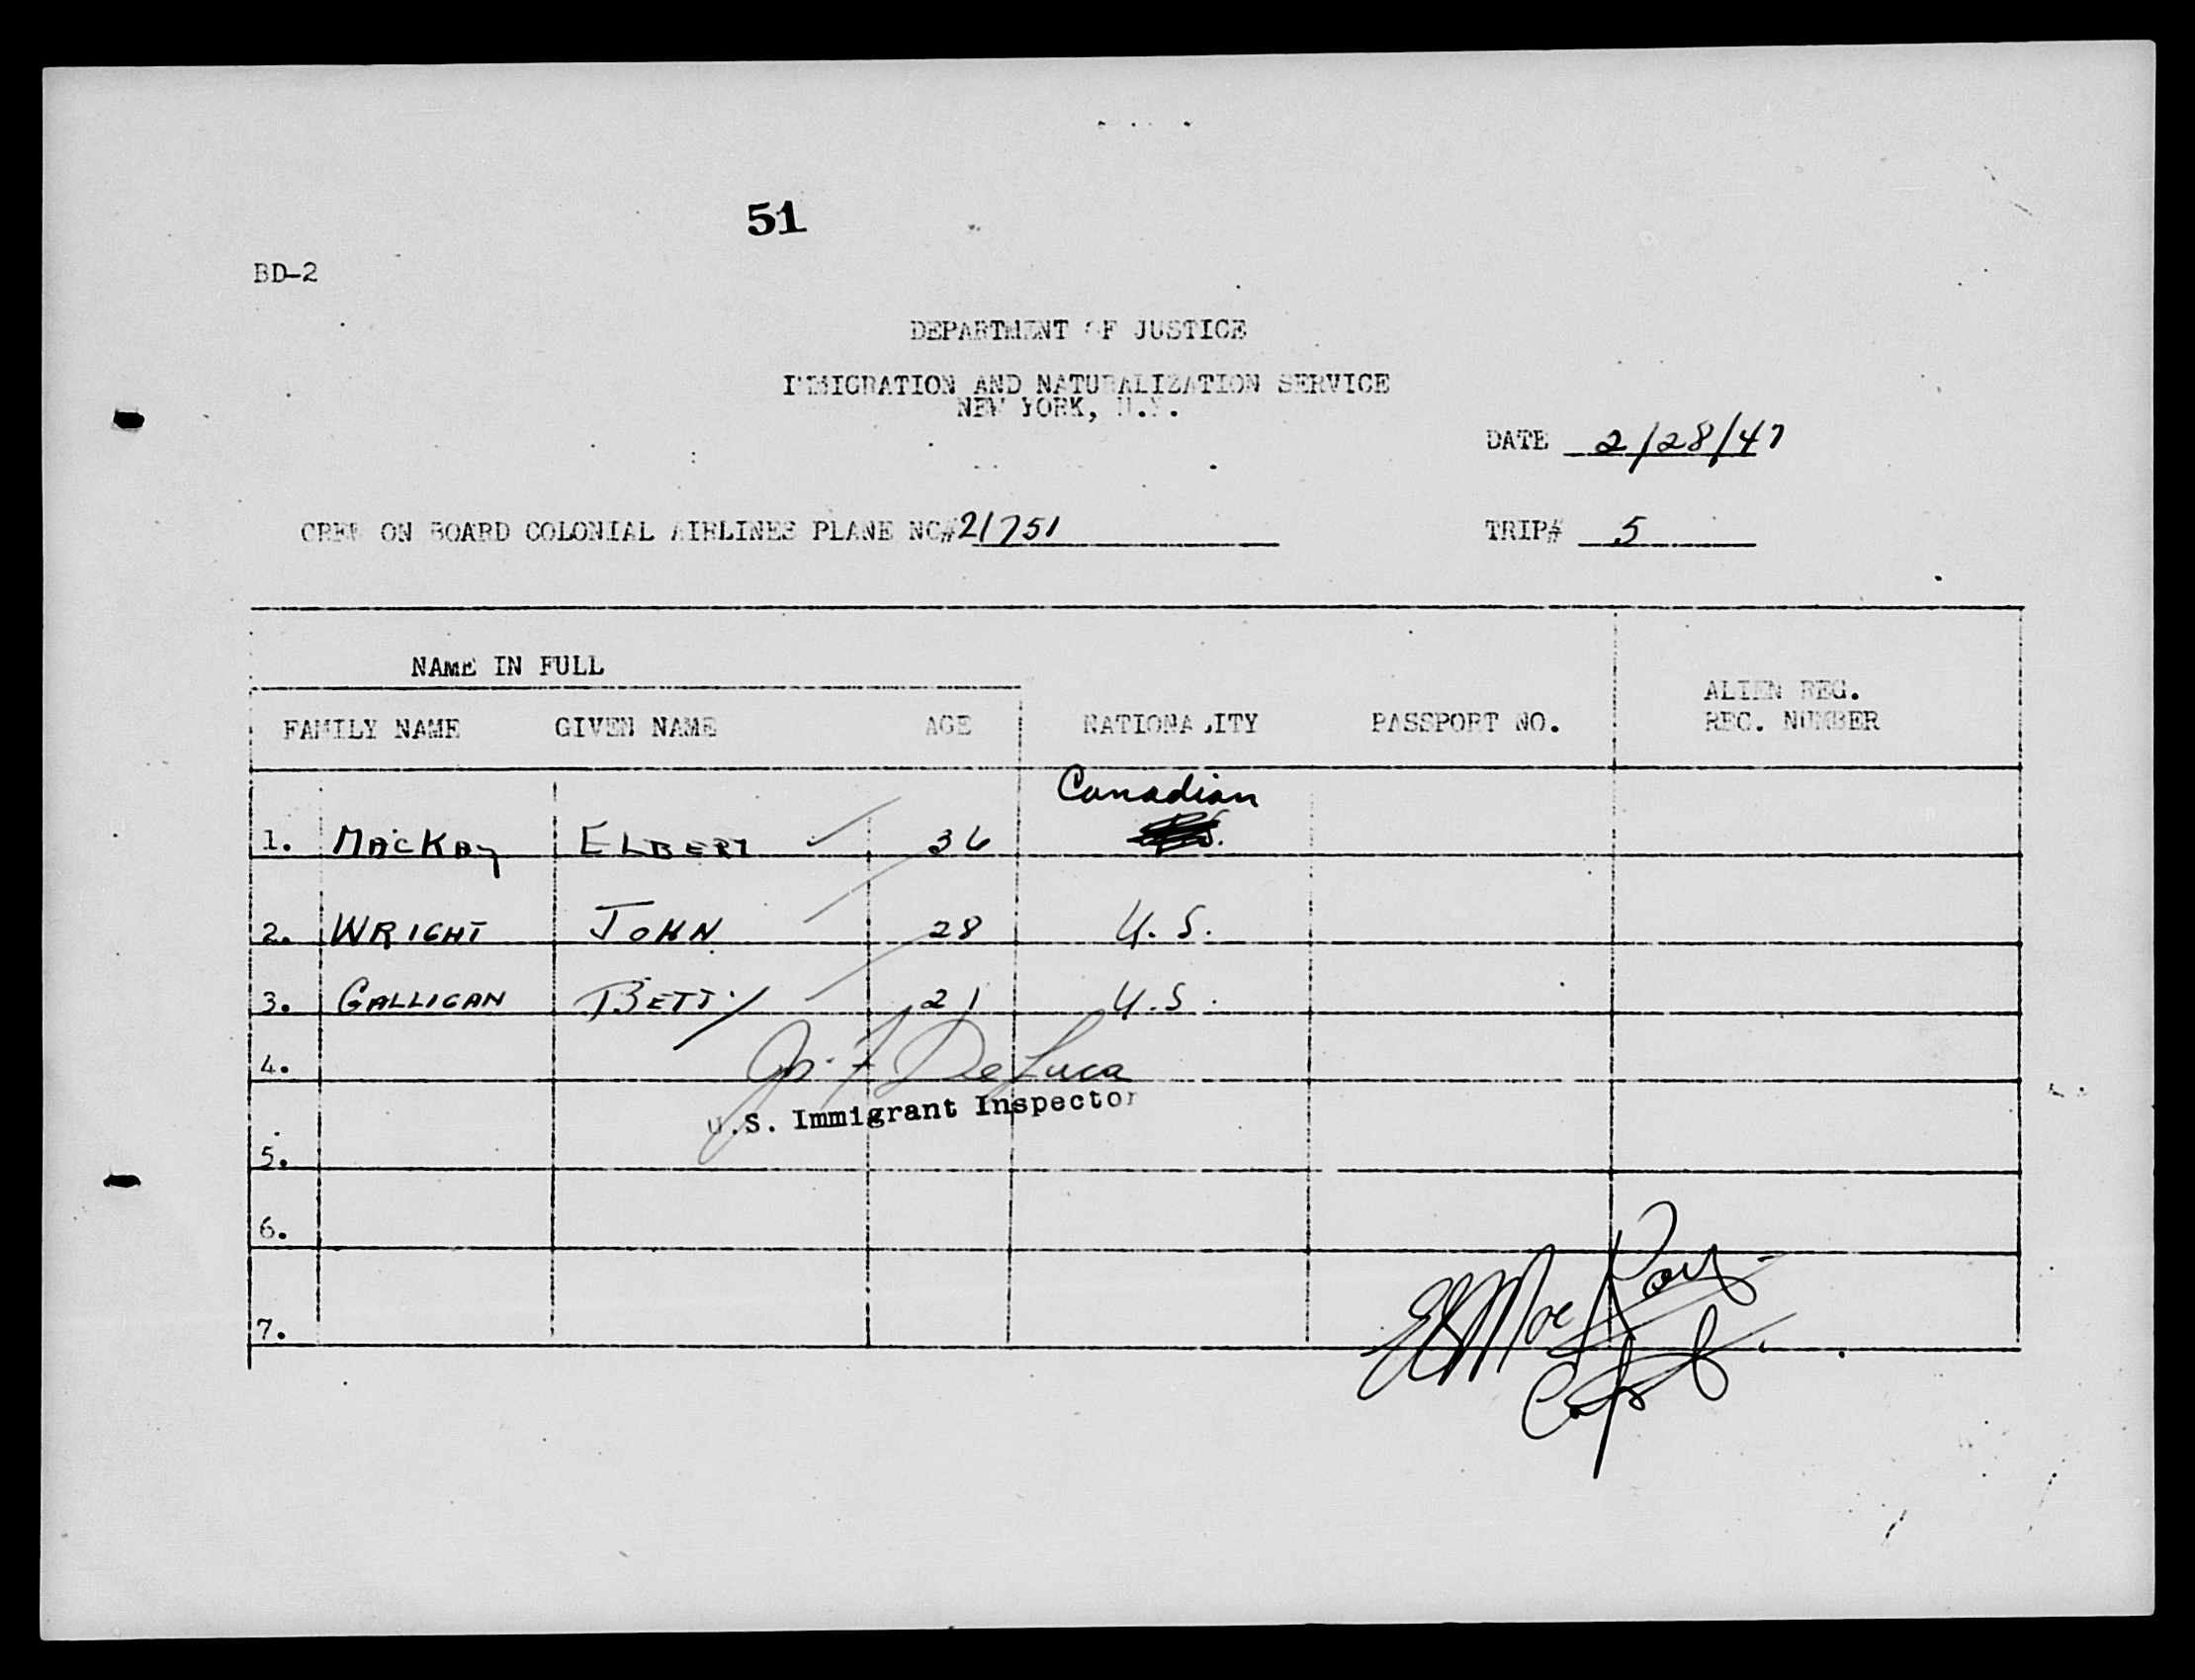 51
BD-2
DEPARTMENT OF JUSTICE
IMMIGRATION AND NATURALIZATION SERVICE
NEW YORK, N.Y.
DATE 2/28/47
CREW ON BOARD COLONIAL AIRLINES PLANE NC#21751 TRIP# 5
NAME IN FULL
ALIEN REG.
FAMILY NAME GIVEN NAME AGE NATIONALITY PASSPORT NO. REC. NUMBER
Canadian
1. MacKay ELBERT 36
2. WRIGHT JOHN 28 U.S.
3. GALLIGAN BETTY 21 U.S.
4. De Luca
U.S. Immigrant Inspector
5.
6.
7.
E MacKay
Capt.